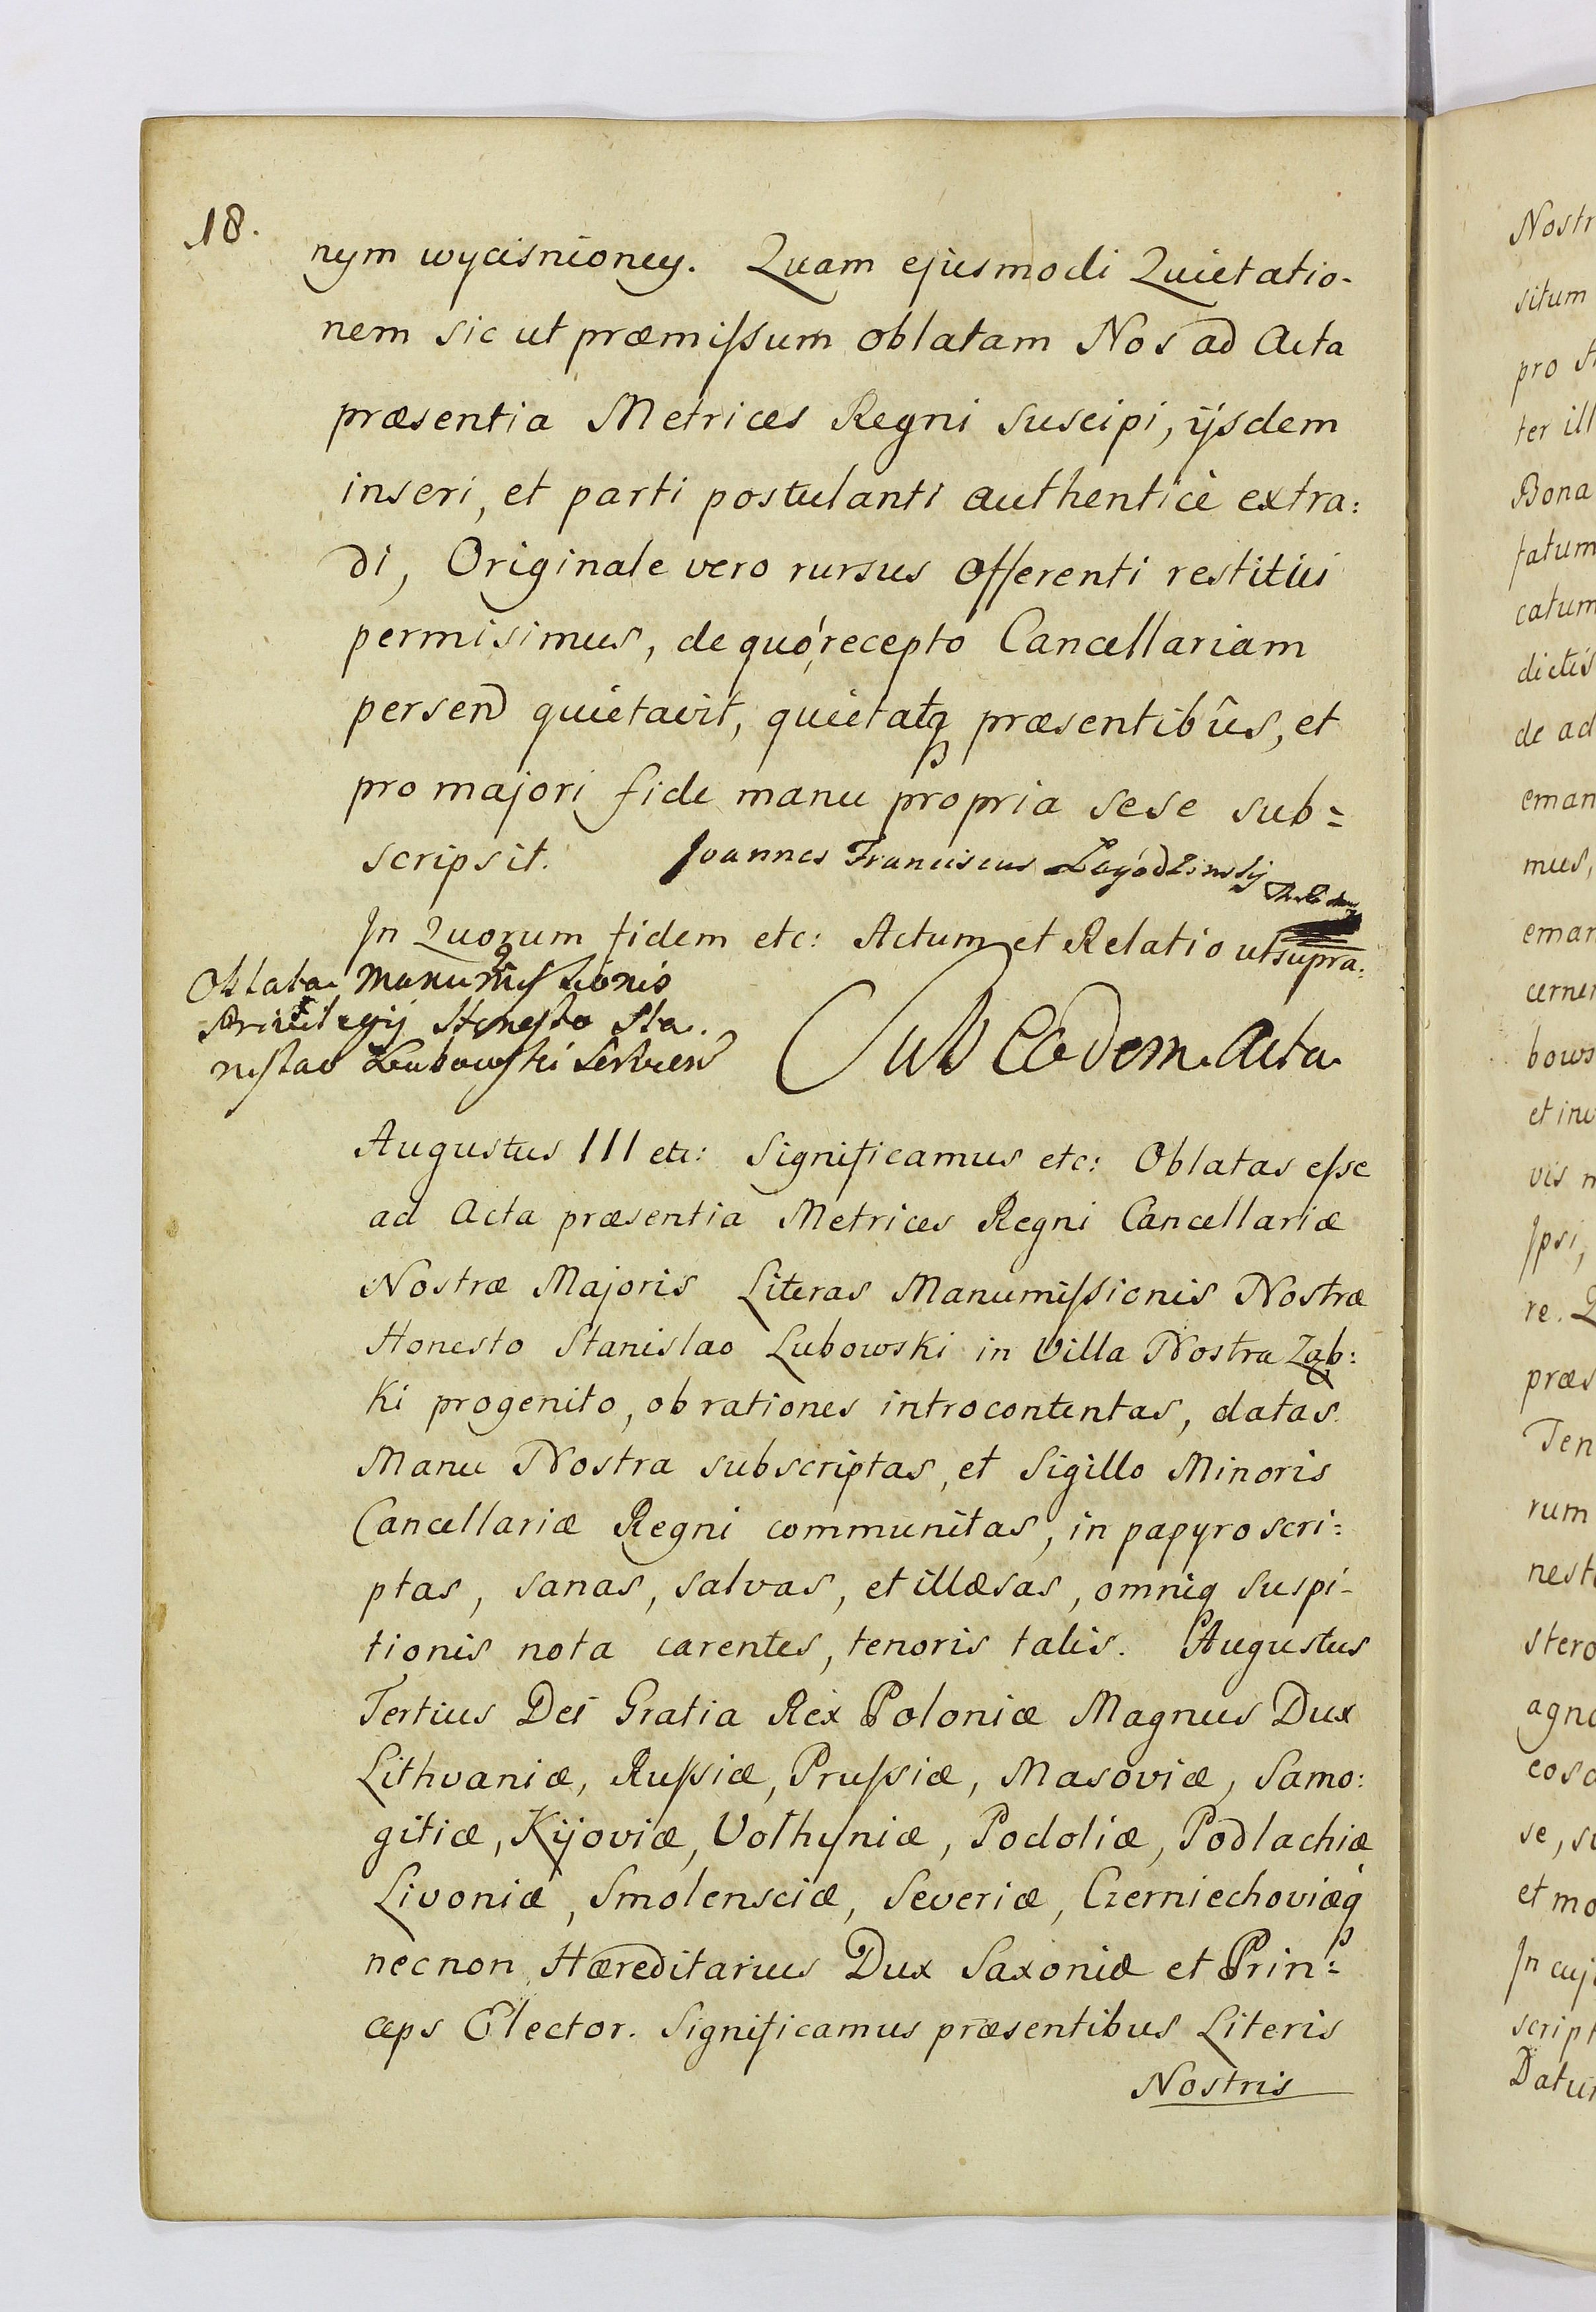 18.
nym wycisnioney. Quam ejusmodi Quietatio-
nem sic ut præmissum oblatam Nos ad Acta
præsentia Metrices Regni suscipi, ijsdem
inseri, et parti postulanti authenticè extra:
di, Originale vero rursus offerenti restitui
permisimus, de quó recepto Cancellariam
persend quietavit, quietatq præsentibûs, et
pro majori fide manu propria sese sub=
scripsit. Joannes Franciscus
In Quorum fidem etc: Actum et Relatio ut supra.
Oblata Manumissionis
Privilegij Honesto Sta.
nislao Lubowski servien
Sub Eadem Acta
Augustus III etc: Significamus etc: Oblatas esse
ad Acta præsentia Metrices Regni Cancellariæ
Nostræ Majoris Literas Manumissionis Nostræ
Honesto Stanislao Lubowski in Villa Nostra Ząb:
ki progenito, ob rationes introcontentas, datas.
Manu Nostra subscriptas, et Sigillo Minoris
Cancellariæ Regni communitas, in papyro scri:
ptas, sanas, salvas, et illæsas, omniq suspi-
tionis nota carentes, tenoris talis. Augustus
Tertius Dei Gratia Rex Poloniæ Magnus Dux
Lithvaniæ, Russiæ, Prussiæ, Masoviæ, Samo:
gitiæ, Kijoviæ, Volhyniæ, Podoliæ, Podlachiæ
Livoniæ, Smolensciæ, Severiæ, Czerniechoviæq
necnon Hæreditarius Dux Saxoniæ et Prin=
ceps Elector. Significamus præsentibus Literis
Nostris
Nostr
situm
pro
ter ill
Bona
tatum
catum
dictis
de ad
eman
mus,
eman
cerner
bows
et inv
vis n
Ipsi,
re. Q
præs
Ten
rum
nest
stero
agno
eos
se, su
et mo
In cuj
script
Datu